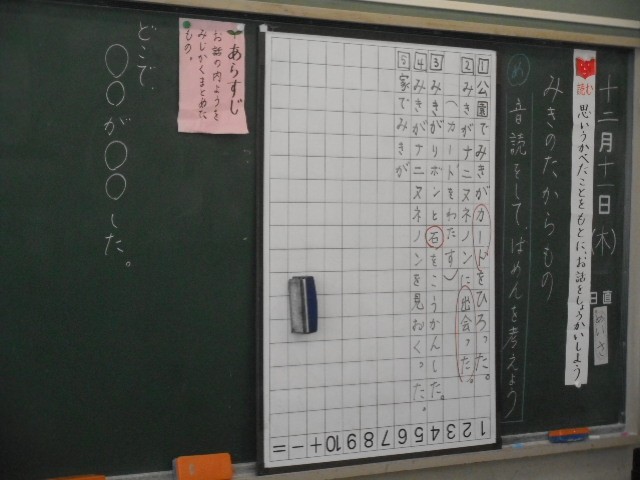 十二月十一日(木)
日直
読む 思いうかべたことをもとに、お話をしょうかいしよう
みきのたからもの
め 音読をして、ばめんを考えよう
1 公園でみきがカードをひろった。
2 みきがナニヌネノンに出会った。
(カードをわたす)
3 みきがリボンと石をこうかんした。
4 みきがナニヌネノンを見おくった。
5 家でみきが
1 2 3 4 5 6 7 8 9 10 + − =
あらすじ
お話の内ようを
みじかくまとめた
もの。
どこで、
○○が○○した。